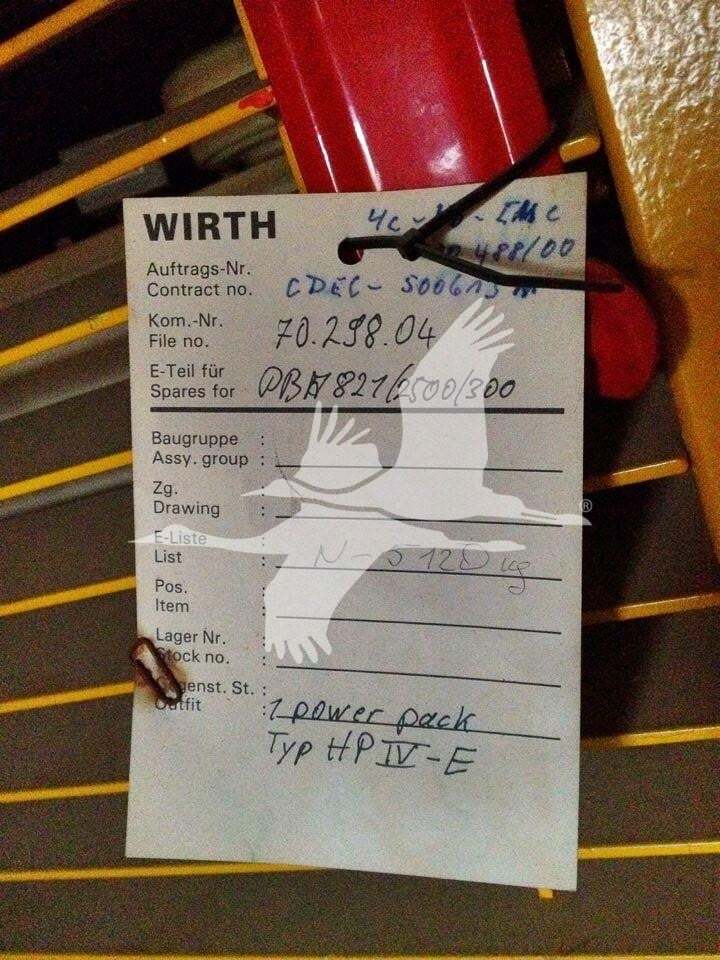 WIRTH
488/00
Auftrags-Nr.
Contract no. CDEC-
Kom.-Nr.
File no. 70.298.04
E-Teil für
Spares for PBA 821/2500/300
Baugruppe :
Assy. group :
Zg. :
Drawing :
E-Liste :
List :
Pos. :
Item :
Lager Nr. :
Stock no. :
genst. St. :
Outfit : 1 power pack
Typ HP IV-E
®